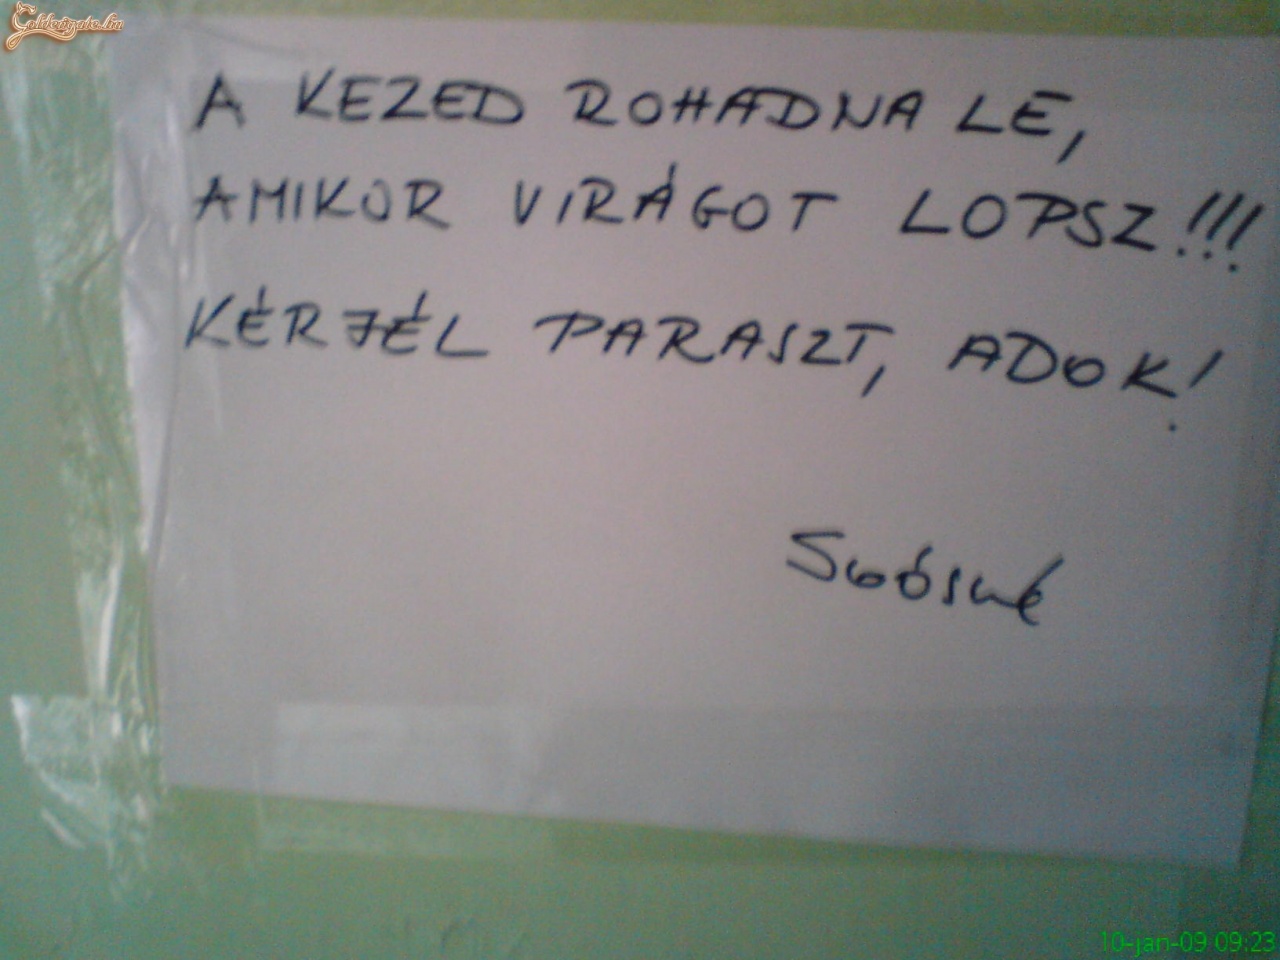 A KEZED ROHADNA LE,
AMIKOR VIRÁGOT LOPSZ!!!
KÉRJÉL PARASZT, ADOK!
10-jan-09 09:23